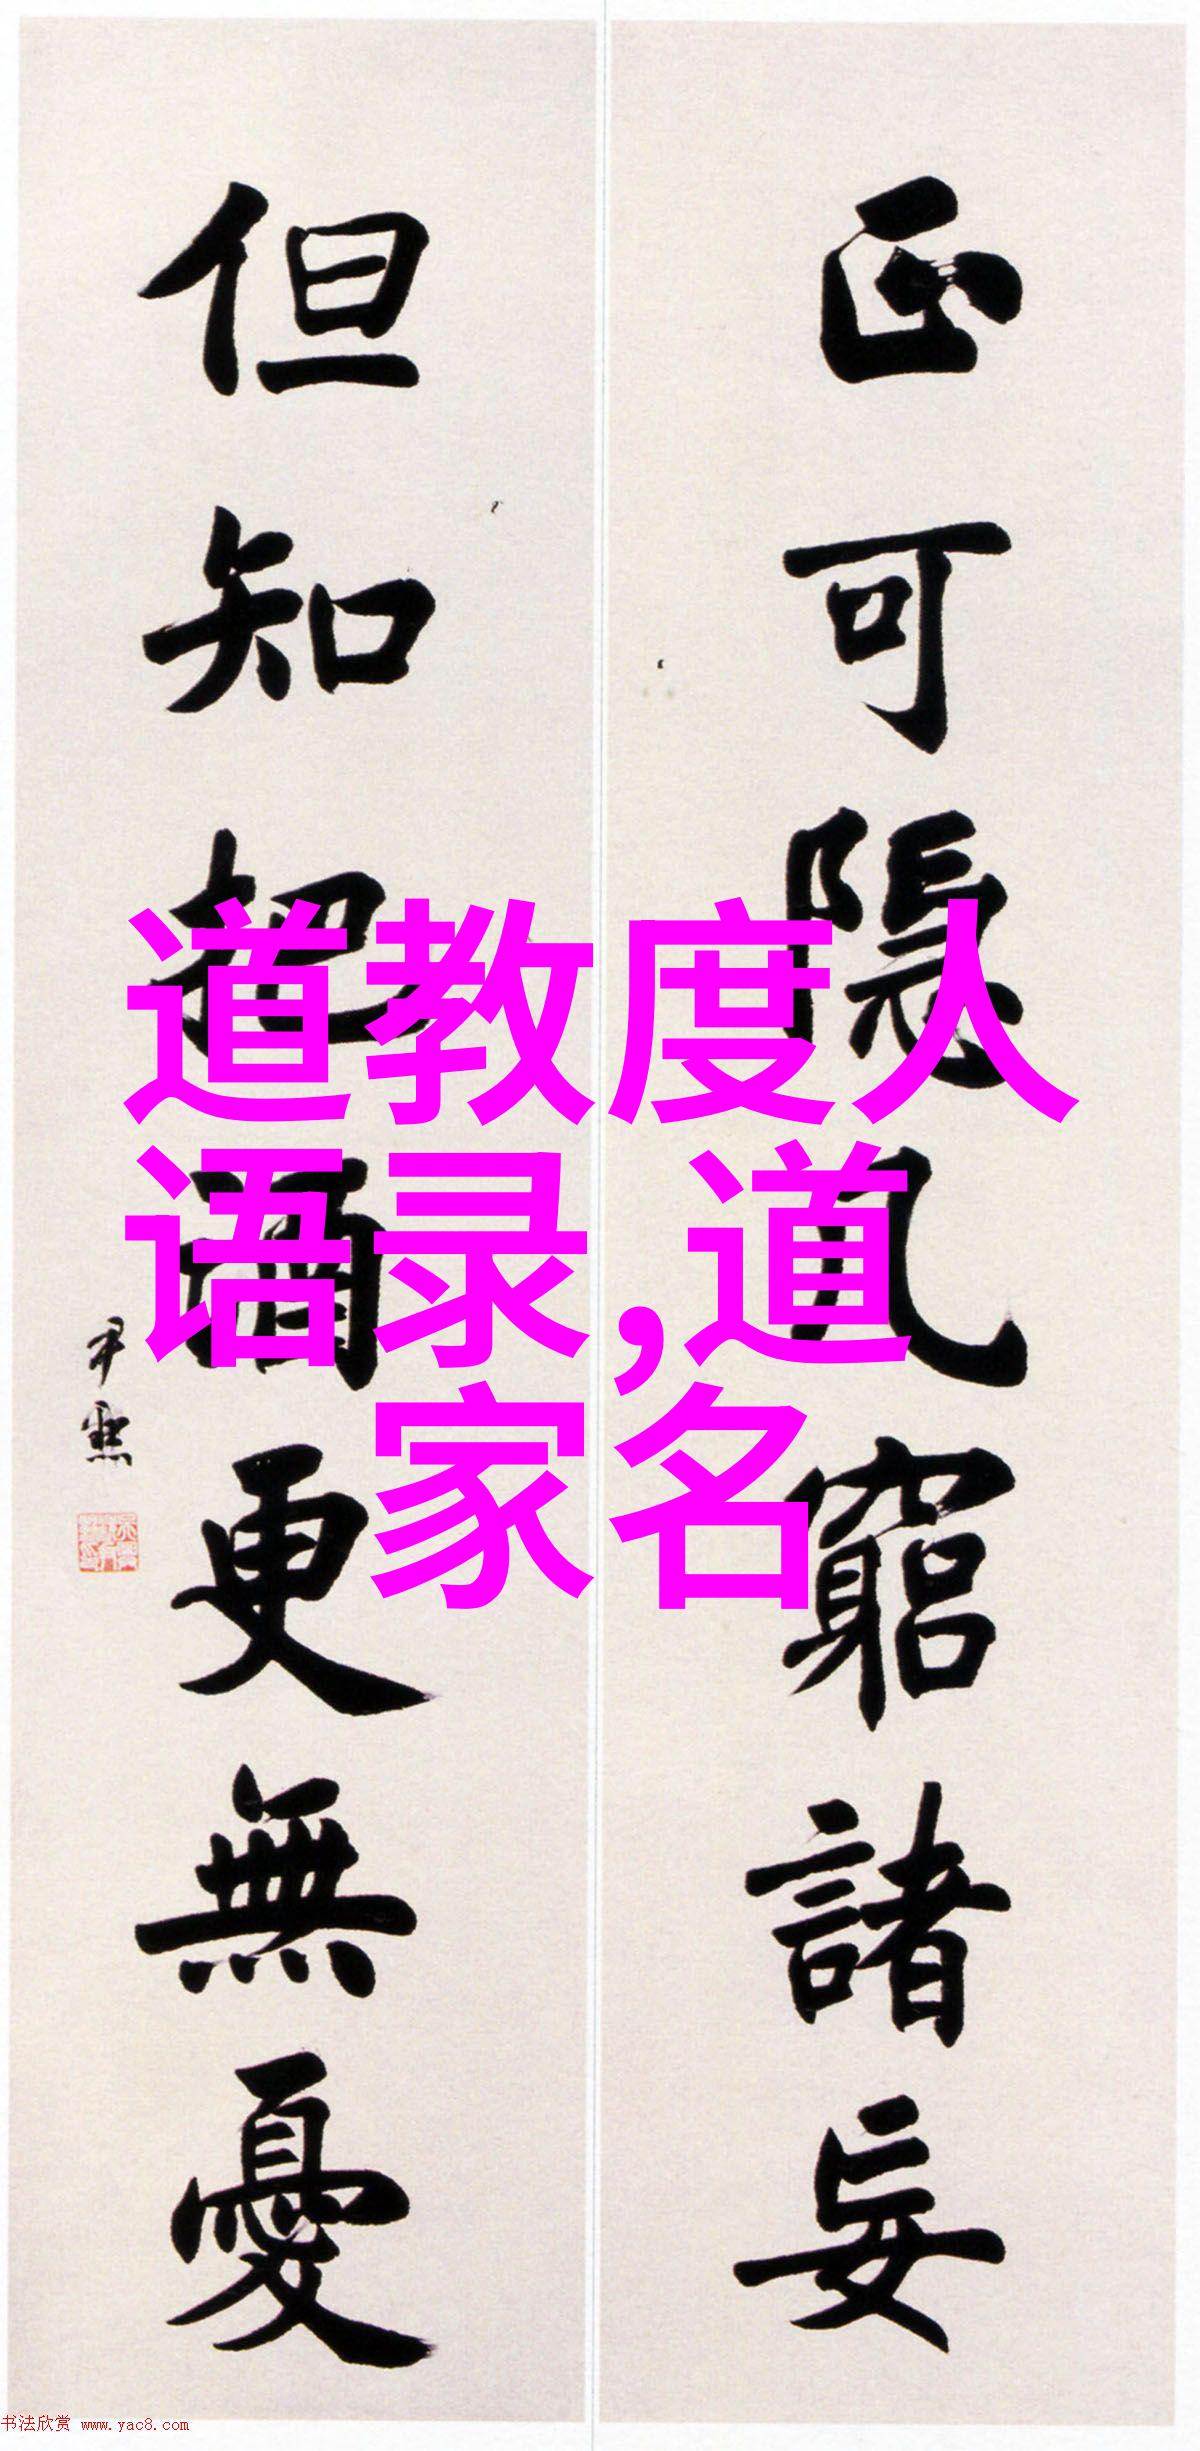 正可隱几窮諸妄
但知把酒更無憂
尹默
道教度人
语录,道
家名
书法欣赏 www.yac8.com